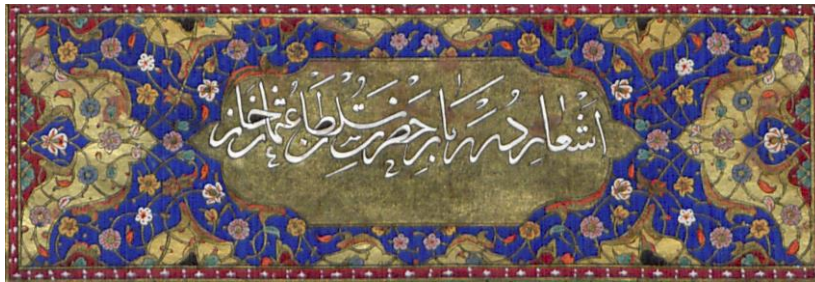 اشعار دُرَر بار حضرت سلطان عثمان خان